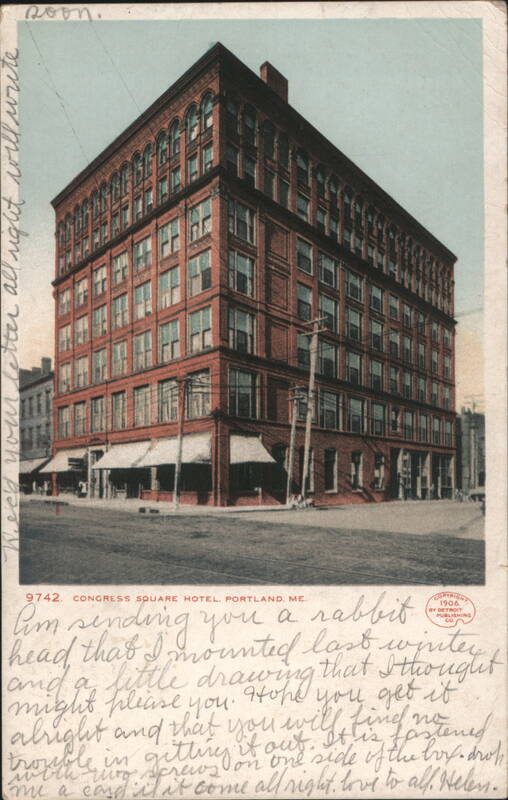 soon.
Rec'd your letter all right will write
9742. CONGRESS SQUARE HOTEL, PORTLAND, ME.
COPYRIGHT
1906.
BY DETROIT
PUBLISHING
CO.
Am sending you a rabbit
head that I mounted last winter
and a little drawing that I thought
might please you. Hope you get it
alright and that you will find no
trouble in gitting it out. It is fastened
with two screws on one side of the box. drop
me a card if it come all right. love to all. Helen.